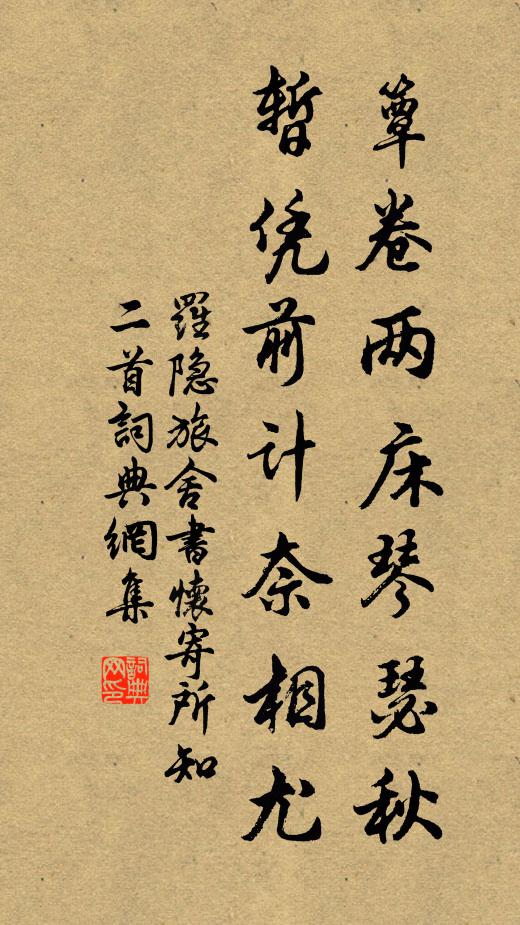 簟卷两床琴瑟秋
暂凭前计奈相尤
羅隐旅舍書懷寄所知
二首詞典網集
詞典网印